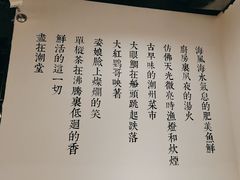 海風海水氣息的肥美魚鮮
廚房裏夙夜的湯火
彷彿天光微亮時漁燈和炊煙
古早味的潮州菜市
大眼鯛在船頭跳起跌落
大紅鸚哥映著
姿娘臉上燦爛的笑
單樅茶在沸騰裏低迴的香
鮮活的這一切
盡在潮堂